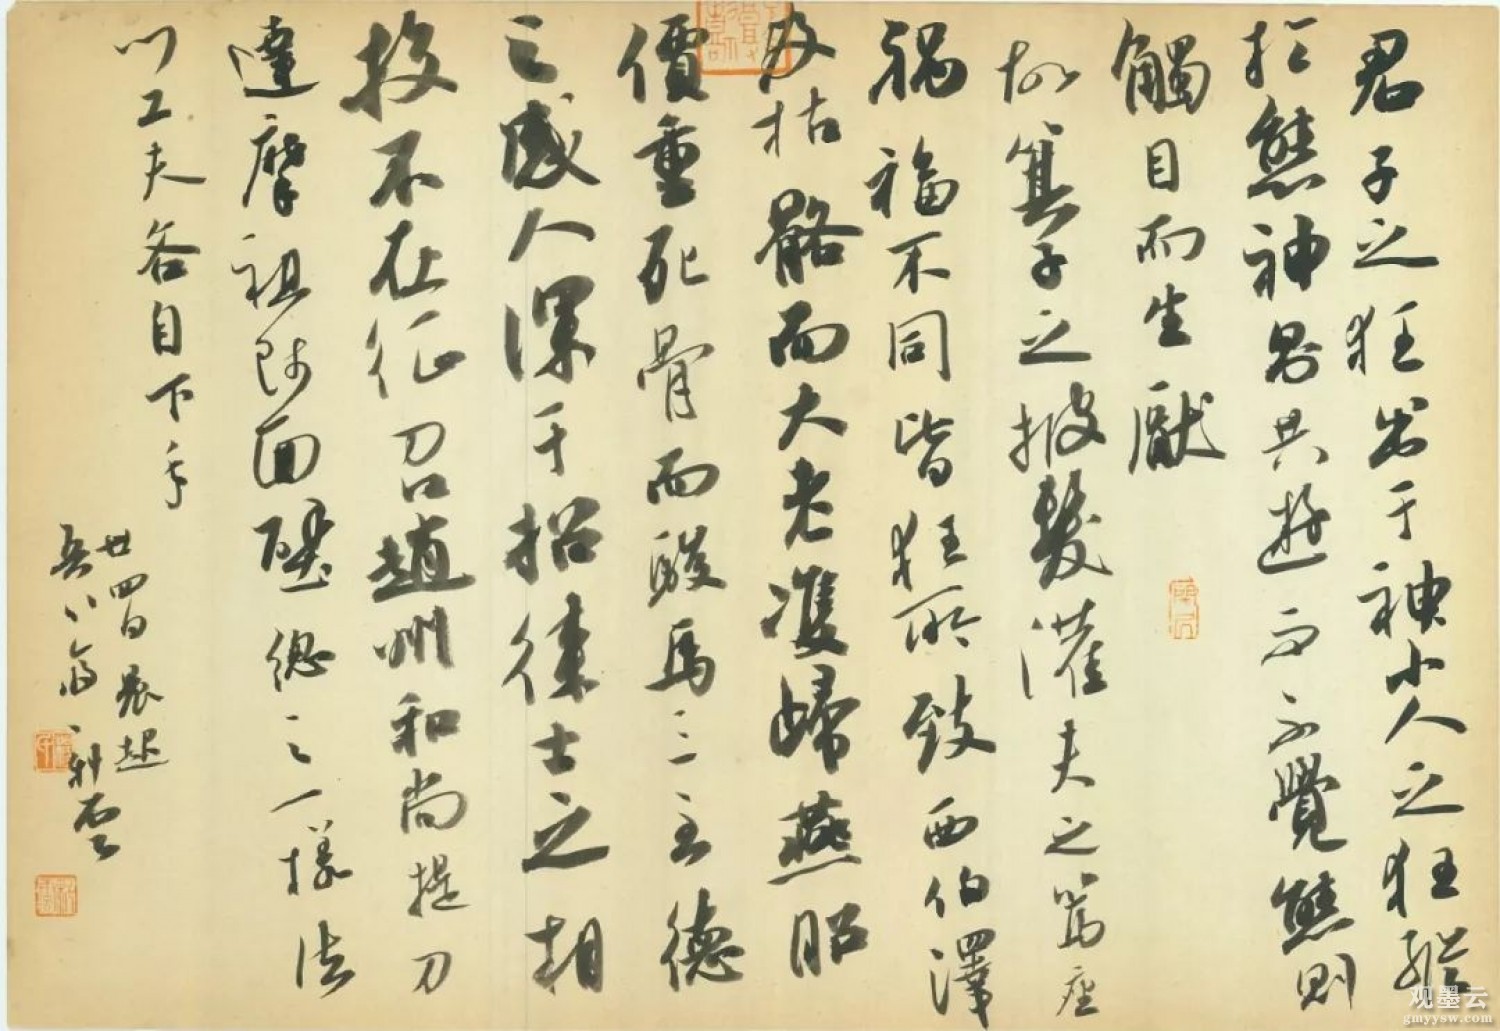 君子之狂出于神小人之狂縱
於態神則共遊而不覺態則
觸目而生厭
故箕子之披髮灌夫之罵座
禍福不同皆狂所致西伯澤
及枯骼而大老雙歸燕昭
價重死骨而駿馬三至德
之感人深于招徠士之相
投不在征召趙州和尚提刀
達摩祖師面壁總之一樣法
门工夫各自下手
廿四日晨起
观墨云
gmyysw.com